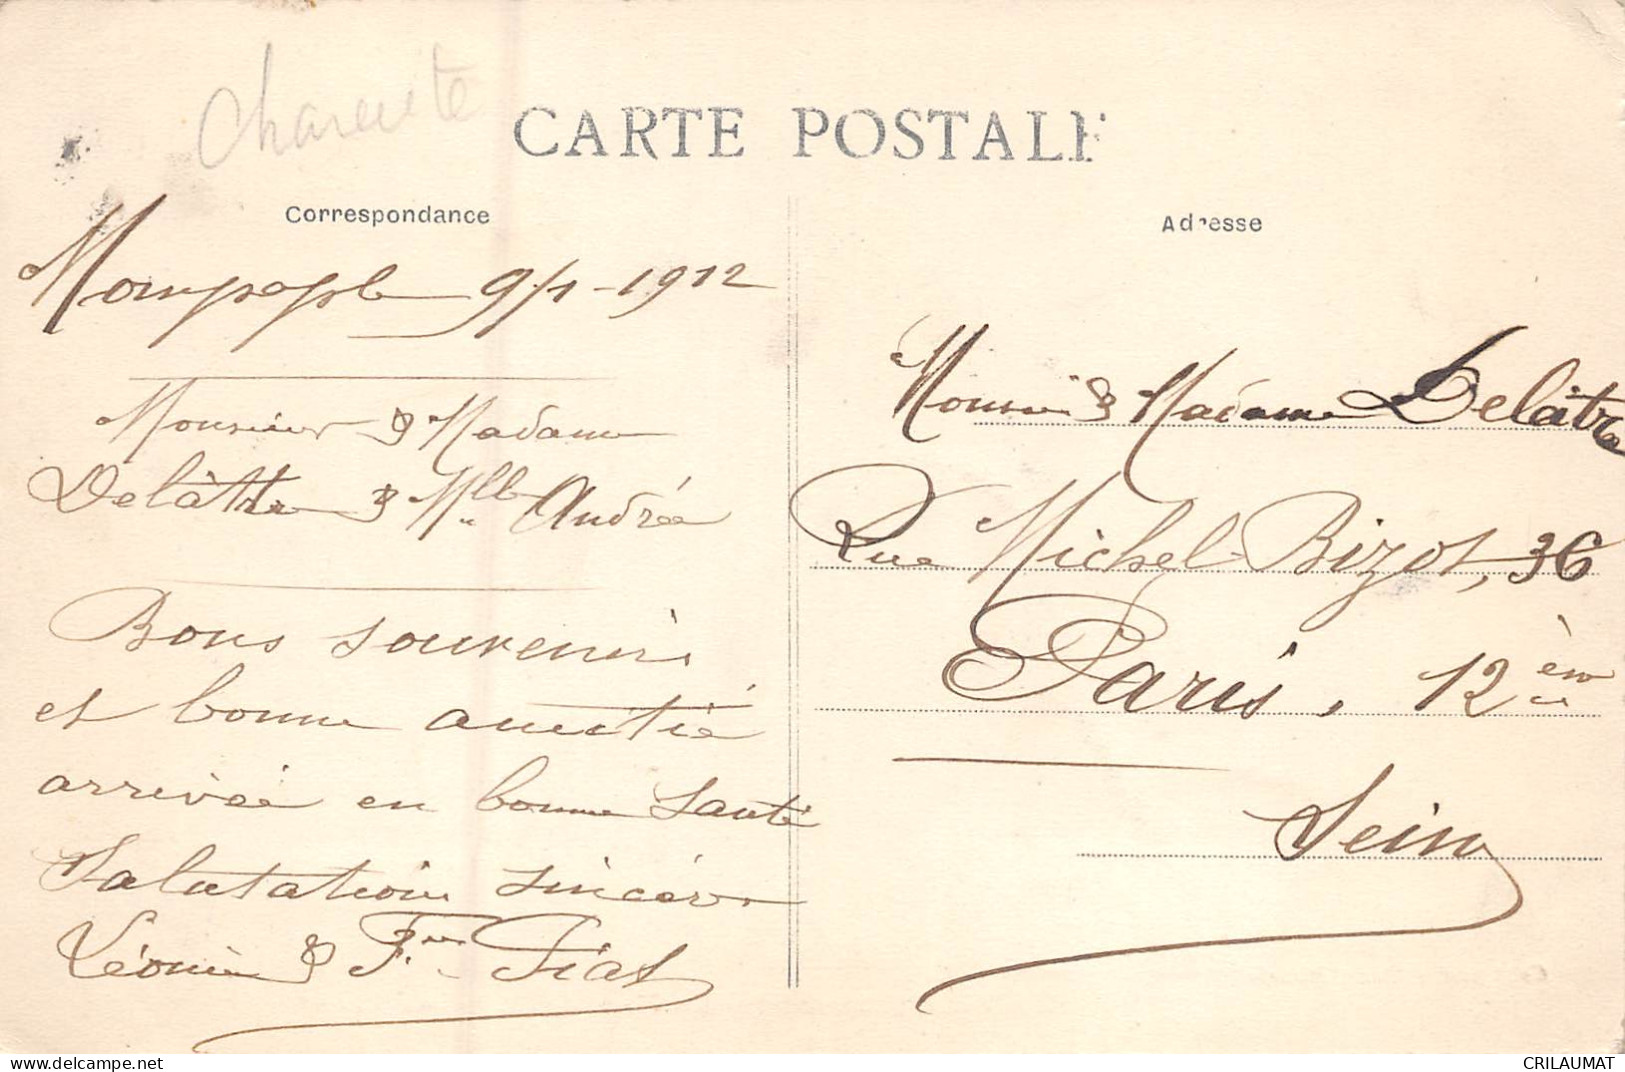 Charente
CARTE POSTALE
Correspondance
Adresse
9/1-1912
Monsieur & Madame
Delâttre & Mlle Andrée
Bons souvenirs
et bonne amitié
arrivée en bonne santé
Salutation sincère
Léonie & F. Fiat
Monsieur & Madame Delâtre
Rue Michel-Bizot, 36
Paris, 12ème
Seine
delcampe.net
CRILAUMAT